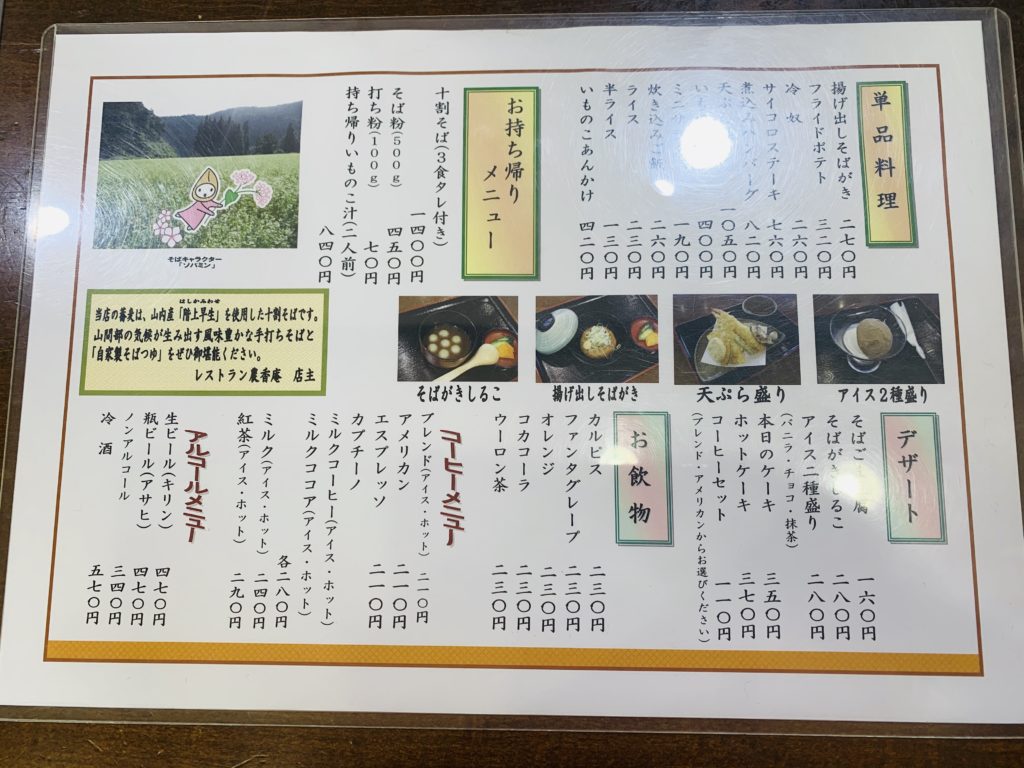 単品料理
揚げ出しそばがき 二七〇円
フライドポテト 三二〇円
冷奴 二六〇円
サイコロステーキ 七六〇円
煮込みハンバーグ 八二〇円
天ぷら 一〇五〇円
四〇〇円
ミニ 一九〇円
炊き込みご飯 二六〇円
ライス 二三〇円
半ライス 一三〇円
いものこあんかけ 四二〇円
お持ち帰り
メニュー
十割そば(3食タレ付き) 一四〇〇円
そば粉(500g) 四五〇円
打ち粉(100g) 七〇円
持ち帰りいものこ汁(二人前) 八四〇円
そばキャラクター
「ソバミン」
はしかみわせ
当店の蕎麦は、山内産「階上早生」を使用した十割そばです。
山間部の気候が生み出す風味豊かな手打ちそばと
「自家製そばつゆ」をぜひ御堪能ください。
レストラン農香庵 店主
そばがきしるこ
揚げ出しそばがき
天ぷら盛り
アイス2種盛り
デザート
そばごま 腐 一六〇円
そばがきしるこ 二八〇円
アイス二種盛り 二八〇円
(バニラ・チョコ・抹茶)
本日のケーキ 三五〇円
ホットケーキ 三七〇円
コーヒーセット 一一〇円
(ブレンド・アメリカンからお選びください)
お飲物
カルピス 二三〇円
ファンタグレープ 二三〇円
オレンジ 二三〇円
コカコーラ 二三〇円
ウーロン茶 二三〇円
コーヒーメニュー
ブレンド(アイス・ホット) 二一〇円
アメリカン 二一〇円
エスプレッソ 二一〇円
カプチーノ
ミルクコーヒー(アイス・ホット)
ミルクココア(アイス・ホット)
各二八〇円
ミルク(アイス・ホット) 二四〇円
紅茶(アイス・ホット) 二九〇円
アルコールメニュー
生ビール(キリン) 四七〇円
瓶ビール(アサヒ) 四七〇円
ノンアルコール 三四〇円
冷酒 五七〇円